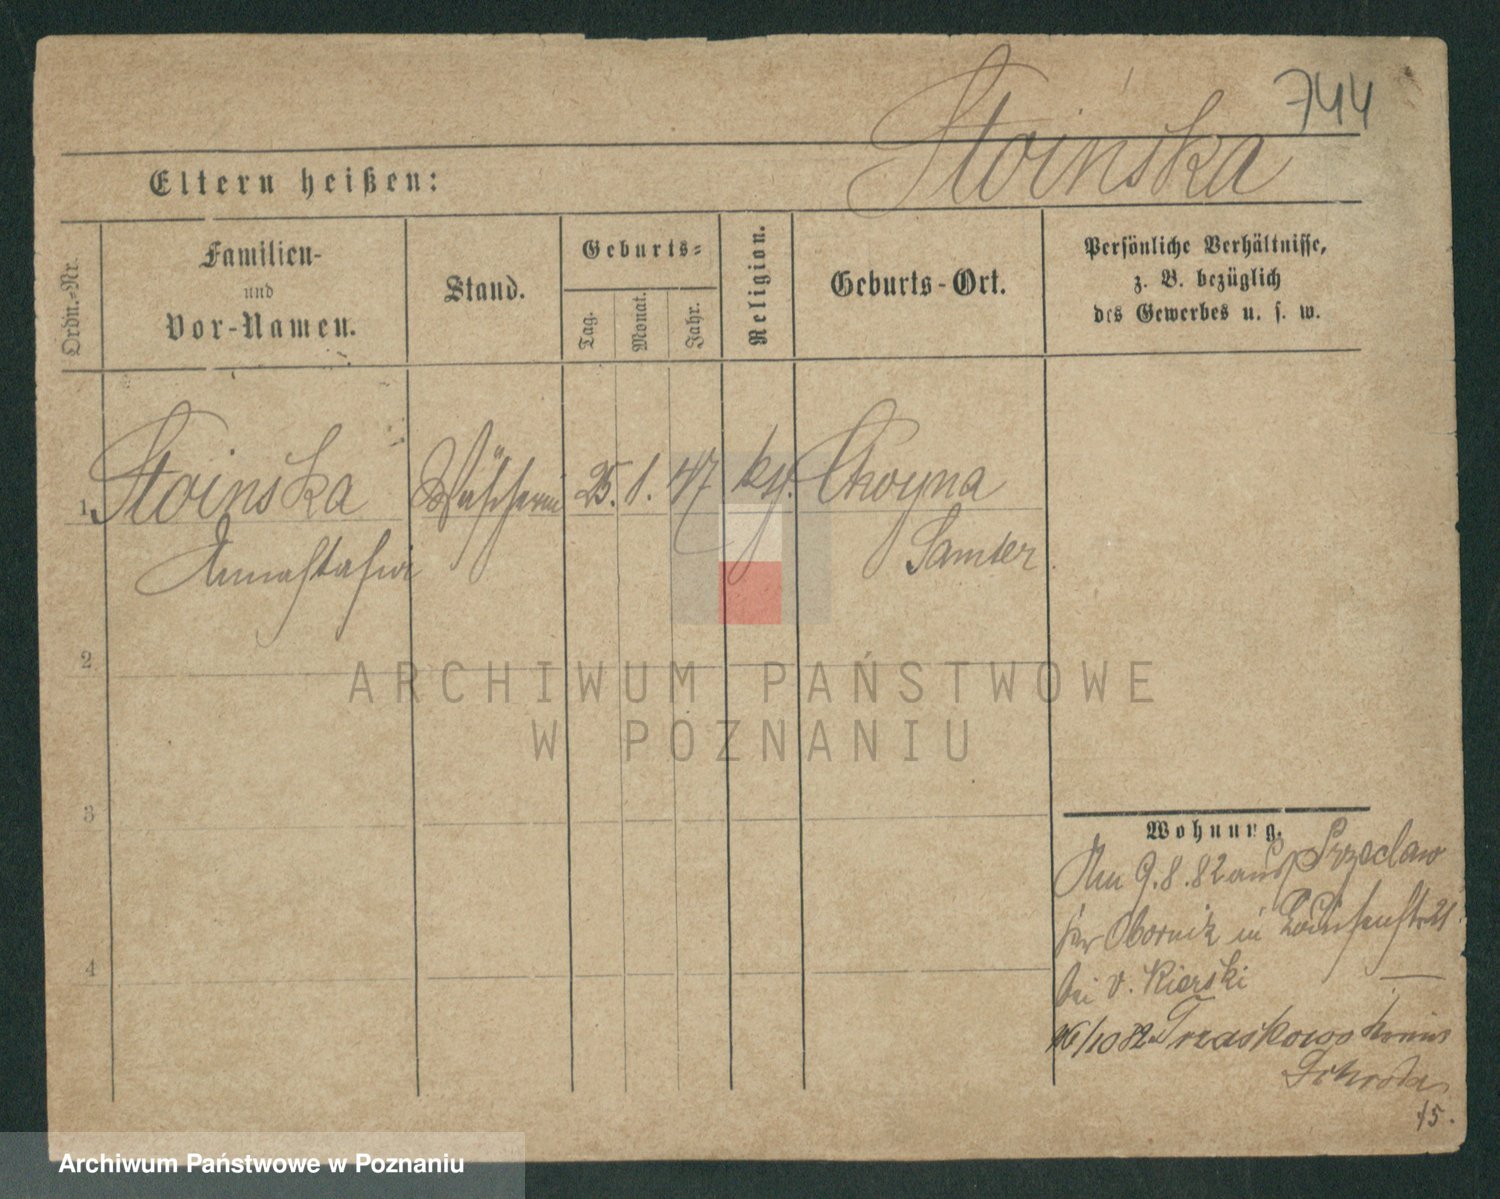 744
Stoinska
Eltern heißen:
Ordn.-Nr.
Familien-
und
Vor-Namen.
Stand.
Geburts-
Tag.
Monat.
Jahr.
Religion.
Geburts-Ort.
Persönliche Verhältnisse,
z. B. bezüglich
des Gewerbes u. s. w.
1 Stoinska Wäscherin 25. 1. 47 kth. Choyna
Annastasia Samter
2
3
4
Wohnung.
Am 9.8.82 aus Przeclaw
Kr Obornik in Louisenstr 21
bei v. Kierski
16/10 82 Trzaskowo Kreis
Schroda
15.
ARCHIWUM PAŃSTWOWE
W POZNANIU
Archiwum Państwowe w Poznaniu